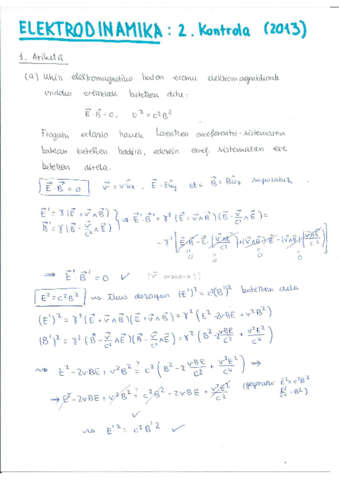 ELEKTRODINAMIKA: 2. Kontrola (2013)
1. Ariketa
(a) Uhin elektromagnetiko baten eremu elektromagnetikoak
ondoko erlazioak betetzen ditu:
E⃗·B⃗=0, E²=c²B²
Frogatu erlazio hauek Lorentzen erreferentzi-sistemaren
batean betetzen badira, edozein erref. sistematan ere
betetzen direla.
E⃗·B⃗=0
E⃗'=γ(E⃗+v⃗∧B⃗)
B⃗'=γ(B⃗-v⃗/c²∧E⃗)
⇒ E⃗'·B⃗'=γ²(E⃗+v⃗∧B⃗)(B⃗-v⃗/c²∧E⃗)=
⇒ E⃗'·B⃗'=0 ✓
E²=c²B² (E')²=c²(B')² betetzen dela
(E')²=γ²(E⃗+v⃗∧B⃗)(E⃗+v⃗∧B⃗)=γ²(E²-2vBE+v²B²)
(B')²=γ²(B⃗-v⃗/c²∧E⃗)(B⃗-v⃗/c²∧E⃗)=γ²(B²-2vBE/c²+v²E²/c⁴)
E²-2vBE+v²B² ?= c²(B²-2vBE/c²+v²E²/c⁴) ⇒
⇒ E²-2vBE+v²B² ?= c²B²-2vBE+v²E²/c² (E²=c²B² E²/c²=B²)
✓
E'²=c²B'² ✓